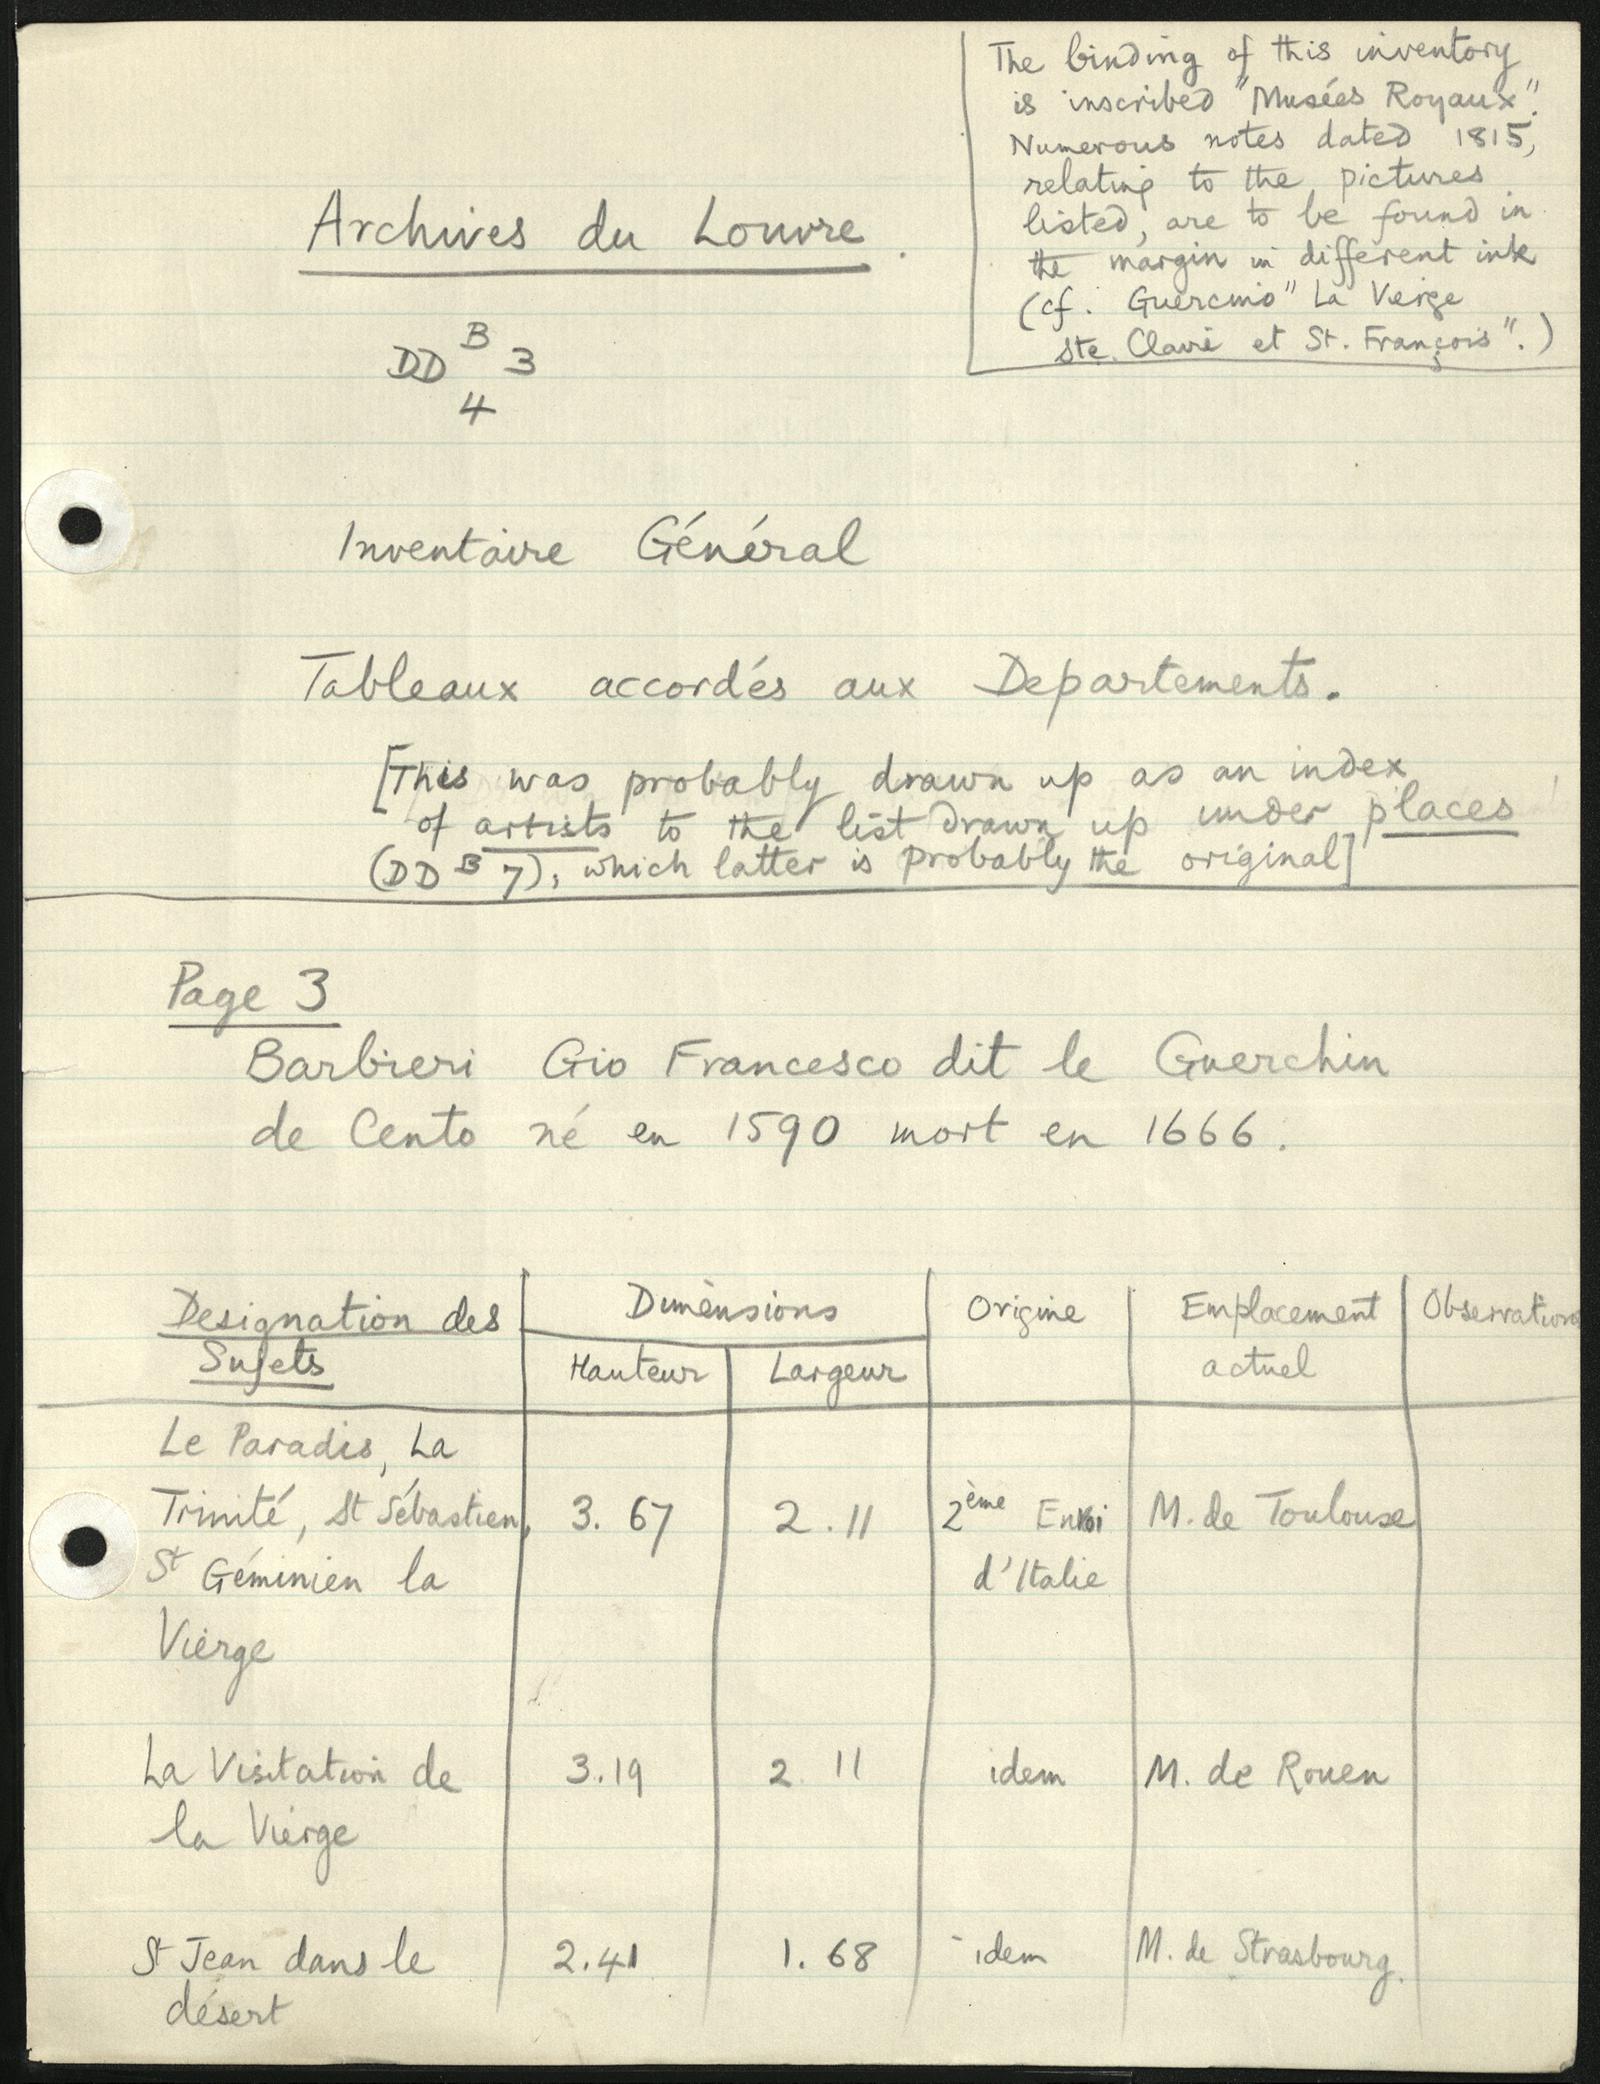 The binding of this inventory
is inscribed "Musées Royaux".
Numerous notes dated 1815,
relating to the pictures
listed, are to be found in
the margin in different ink
(cf. Guercino "La Verge
Ste. Claire et St. François".)
Archives du Louvre.
DD B 3
4
Inventaire Général
Tableaux accordés aux Departements.
[This was probably drawn up as an index
of artists to the list drawn up under places
(DD B 7), which latter is probably the original]
Page 3
Barbieri Gio Francesco dit le Guerchin
de Cento né en 1590 mort en 1666.
Designation des Sujets
Dimensions
Hauteur
Largeur
Origine
Emplacement
actuel
Observations
Le Paradis, La
Trinité, St Sébastien, 3. 67 2. 11 2ème Envoi M. de Toulouse
St Géminien la d'Italie
Vierge
La Visitation de 3.19 2. 11 idem M. de Rouen
la Vierge
St Jean dans le 2.41 1. 68 idem M. de Strasbourg.
désert